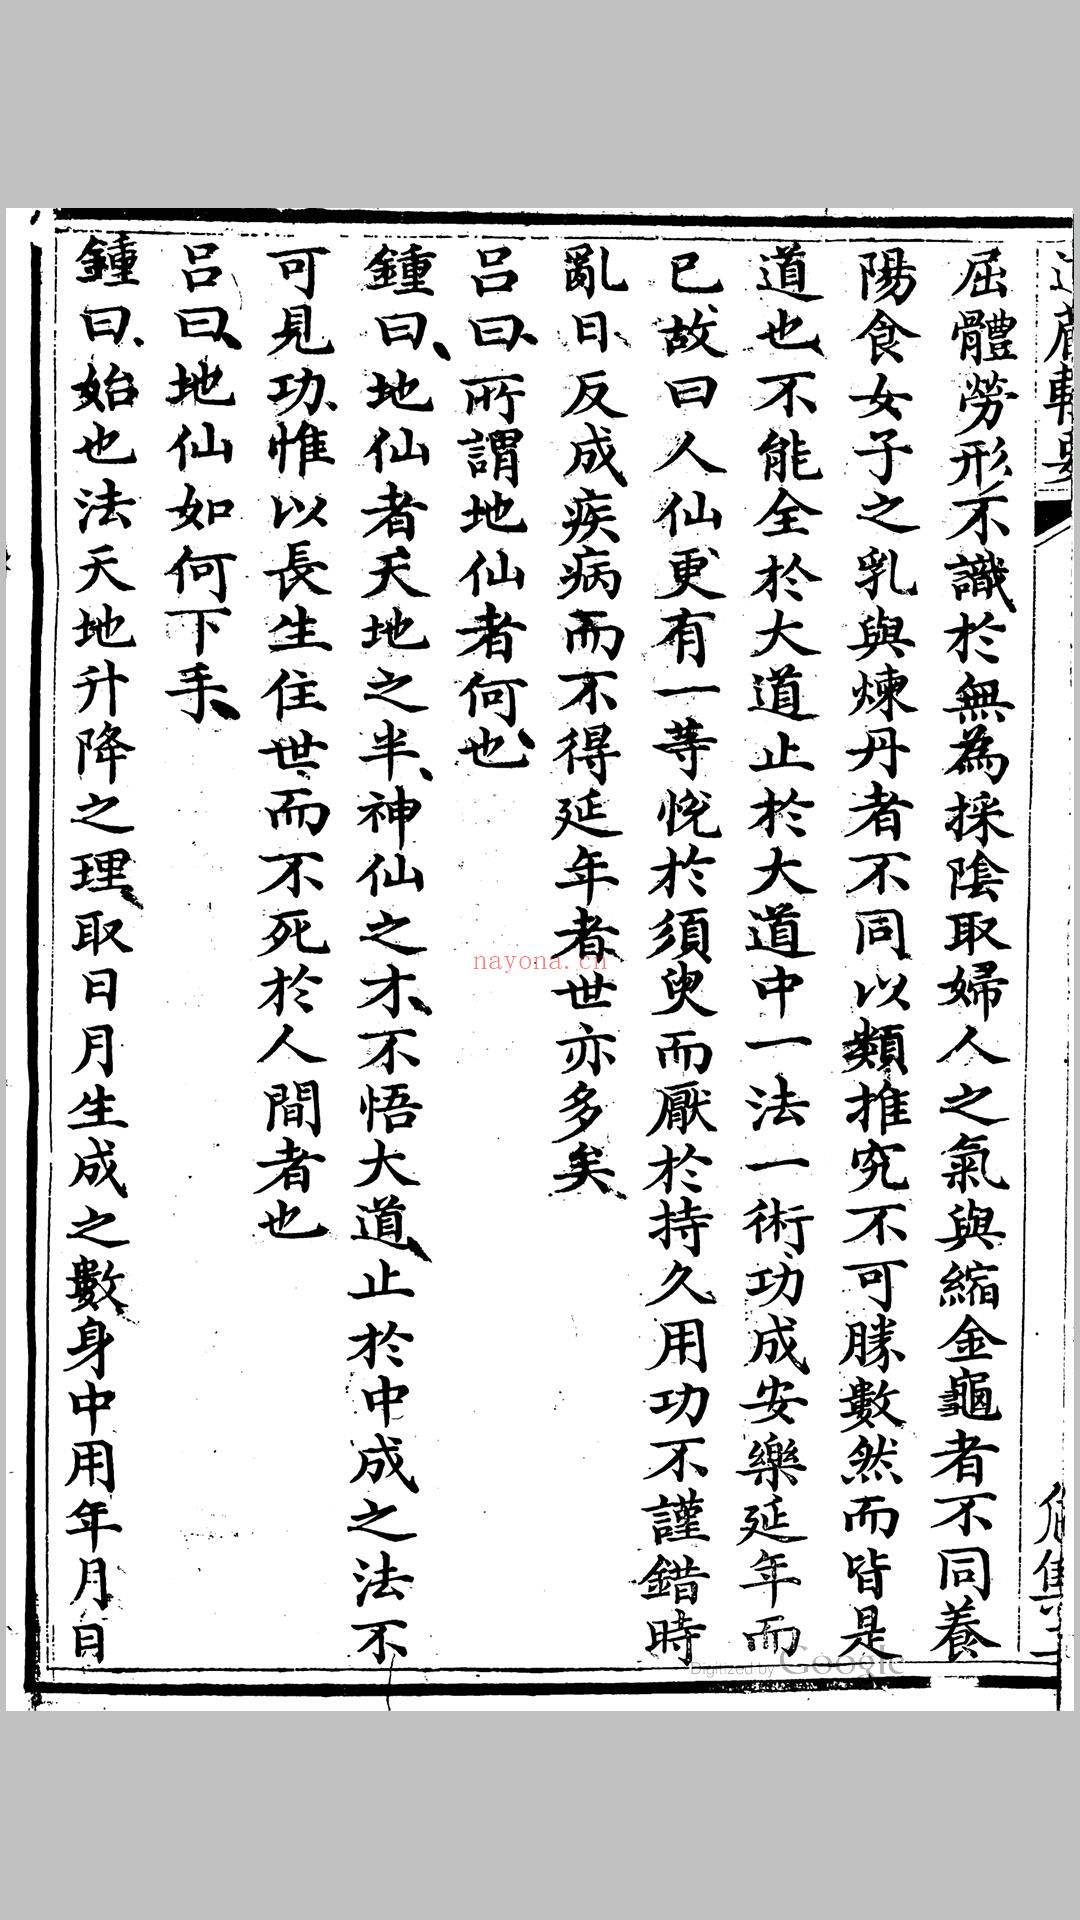 道藏輯要
屈體勞形不識於無為採陰取婦人之氣與縮金龜者不同養
陽食女子之乳與煉丹者不同以類推究不可勝數然而皆是
道也不能全於大道止於大道中一法一術功成安樂延年而
已故曰人仙更有一等悅於須臾而厭於持久用功不謹錯時
亂日反成疾病而不得延年者世亦多矣
呂曰所謂地仙者何也
鍾曰地仙者天地之半神仙之才不悟大道止於中成之法不
可見功惟以長生住世而不死於人間者也
呂曰地仙如何下手
鍾曰始也法天地升降之理取日月生成之數身中用年月日
nayona.cn
Digitized by Google